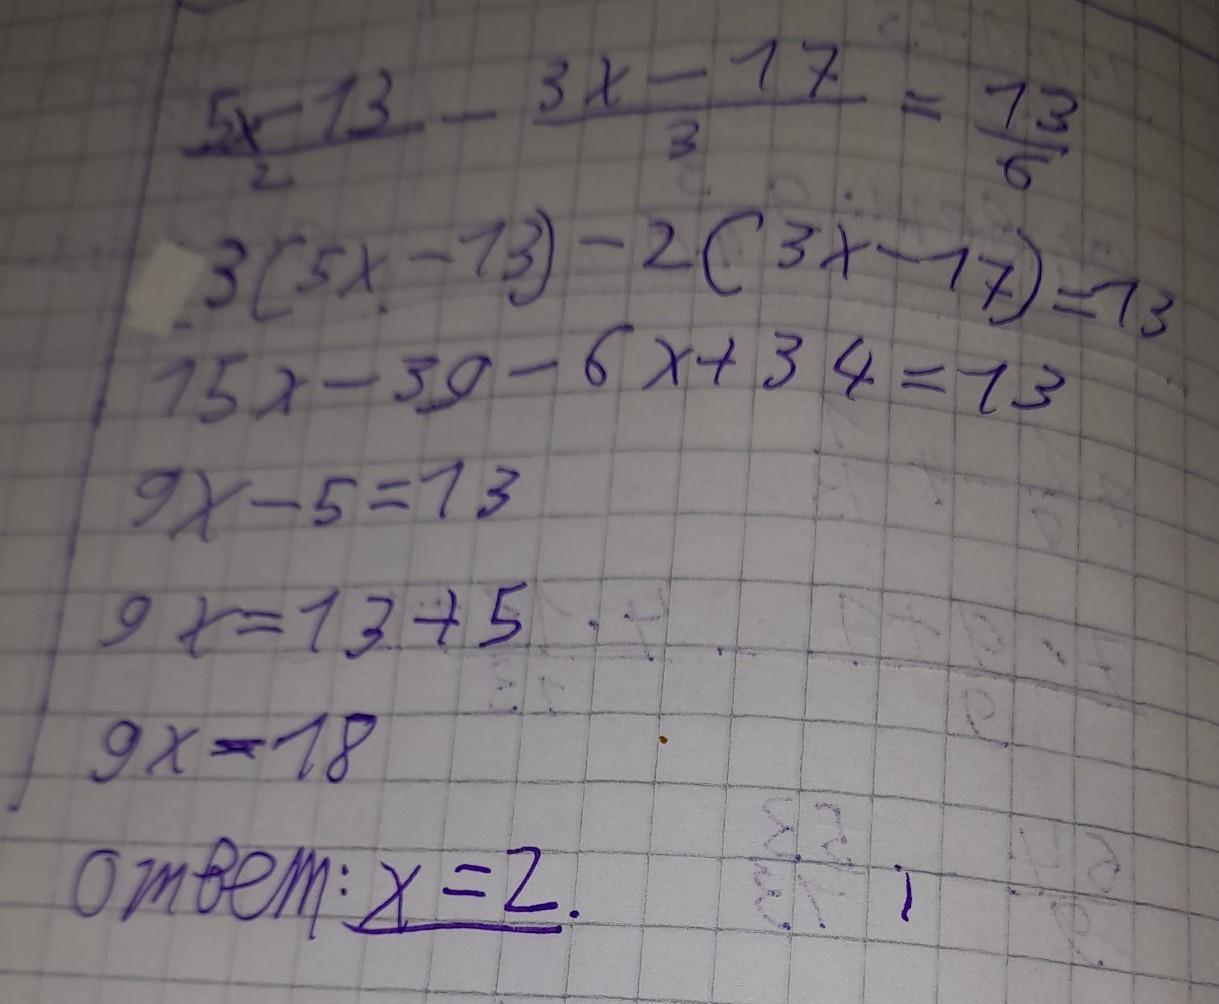 5x-13/2 - 3x-17/3 = 13/6
3(5x-13)-2(3x-17)=13
15x-39-6x+34=13
9x-5=13
9x=13+5
9x=18
ответ: x=2.